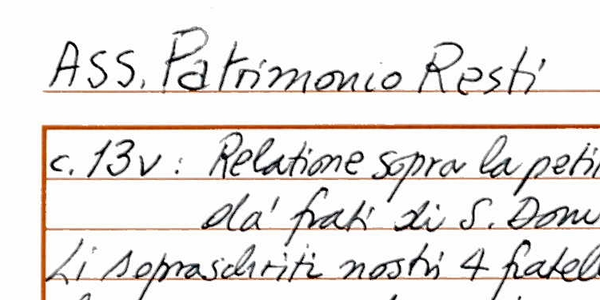 ASS. Patrimonio Resti
c. 13v: Relatione sopra la
da' frati di S.
Li soprascritti nostri 4